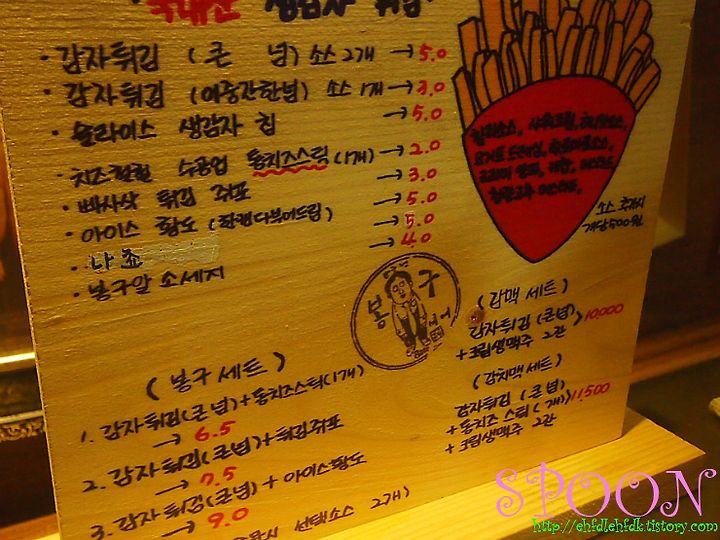 국내산 생감자 튀김
· 감자튀김 (큰 넘) 소스 2개 → 5.0
· 감자튀김 (어중간한넘) 소스 1개 → 3.0
· 슬라이스 생감자 칩 → 5.0
· 치즈한컨 수공업 통치즈스틱 (1개) → 2.0
· 빠사삭 튀김 쥐포 → 3.0
· 아이스 황도 (한캔다부어드림) → 5.0
· 나쵸 → 5.0
· 봉구알 소세지 → 4.0
소스 추가시
개당 500원
봉구
(봉구세트)
1. 감자튀김(큰넘)+통치즈스틱(1개)
→ 6.5
2. 감자튀김(큰넘)+튀김쥐포
→ 7.5
3. 감자튀김(큰넘) + 아이스황도
→ 9.0
선택소스 2개)
(감맥 세트)
감자튀김(큰넘)
+크림생맥주 2잔 10,000
(감치맥세트)
감자튀김 (큰넘)
+통치즈 스틱(1개) 11,500
+크림생맥주 2잔
SPOON
http://ehfdlehfdk.tistory.com